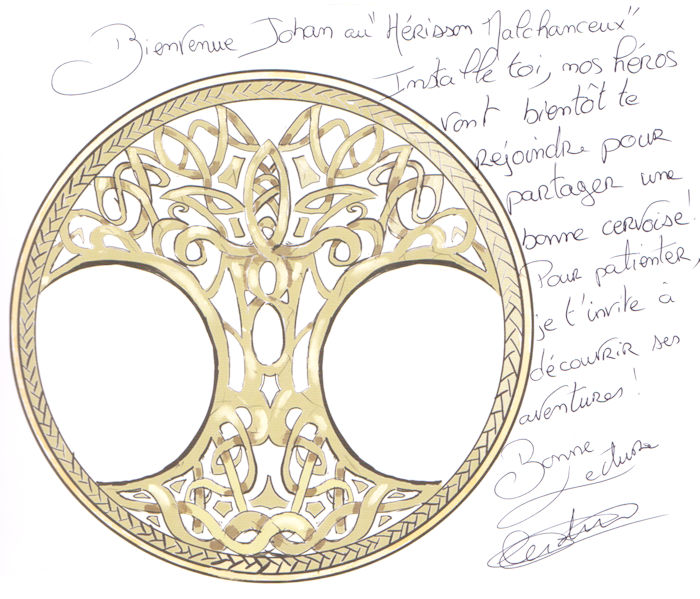 Bienvenue Johan au "Hérisson Malchanceux"
Installe toi, nos héros
vont bientôt te
rejoindre pour
partager une
bonne cervoise!
Pour patienter,
je t'invite à
découvrir ses
aventures!
Bonne
Lecture